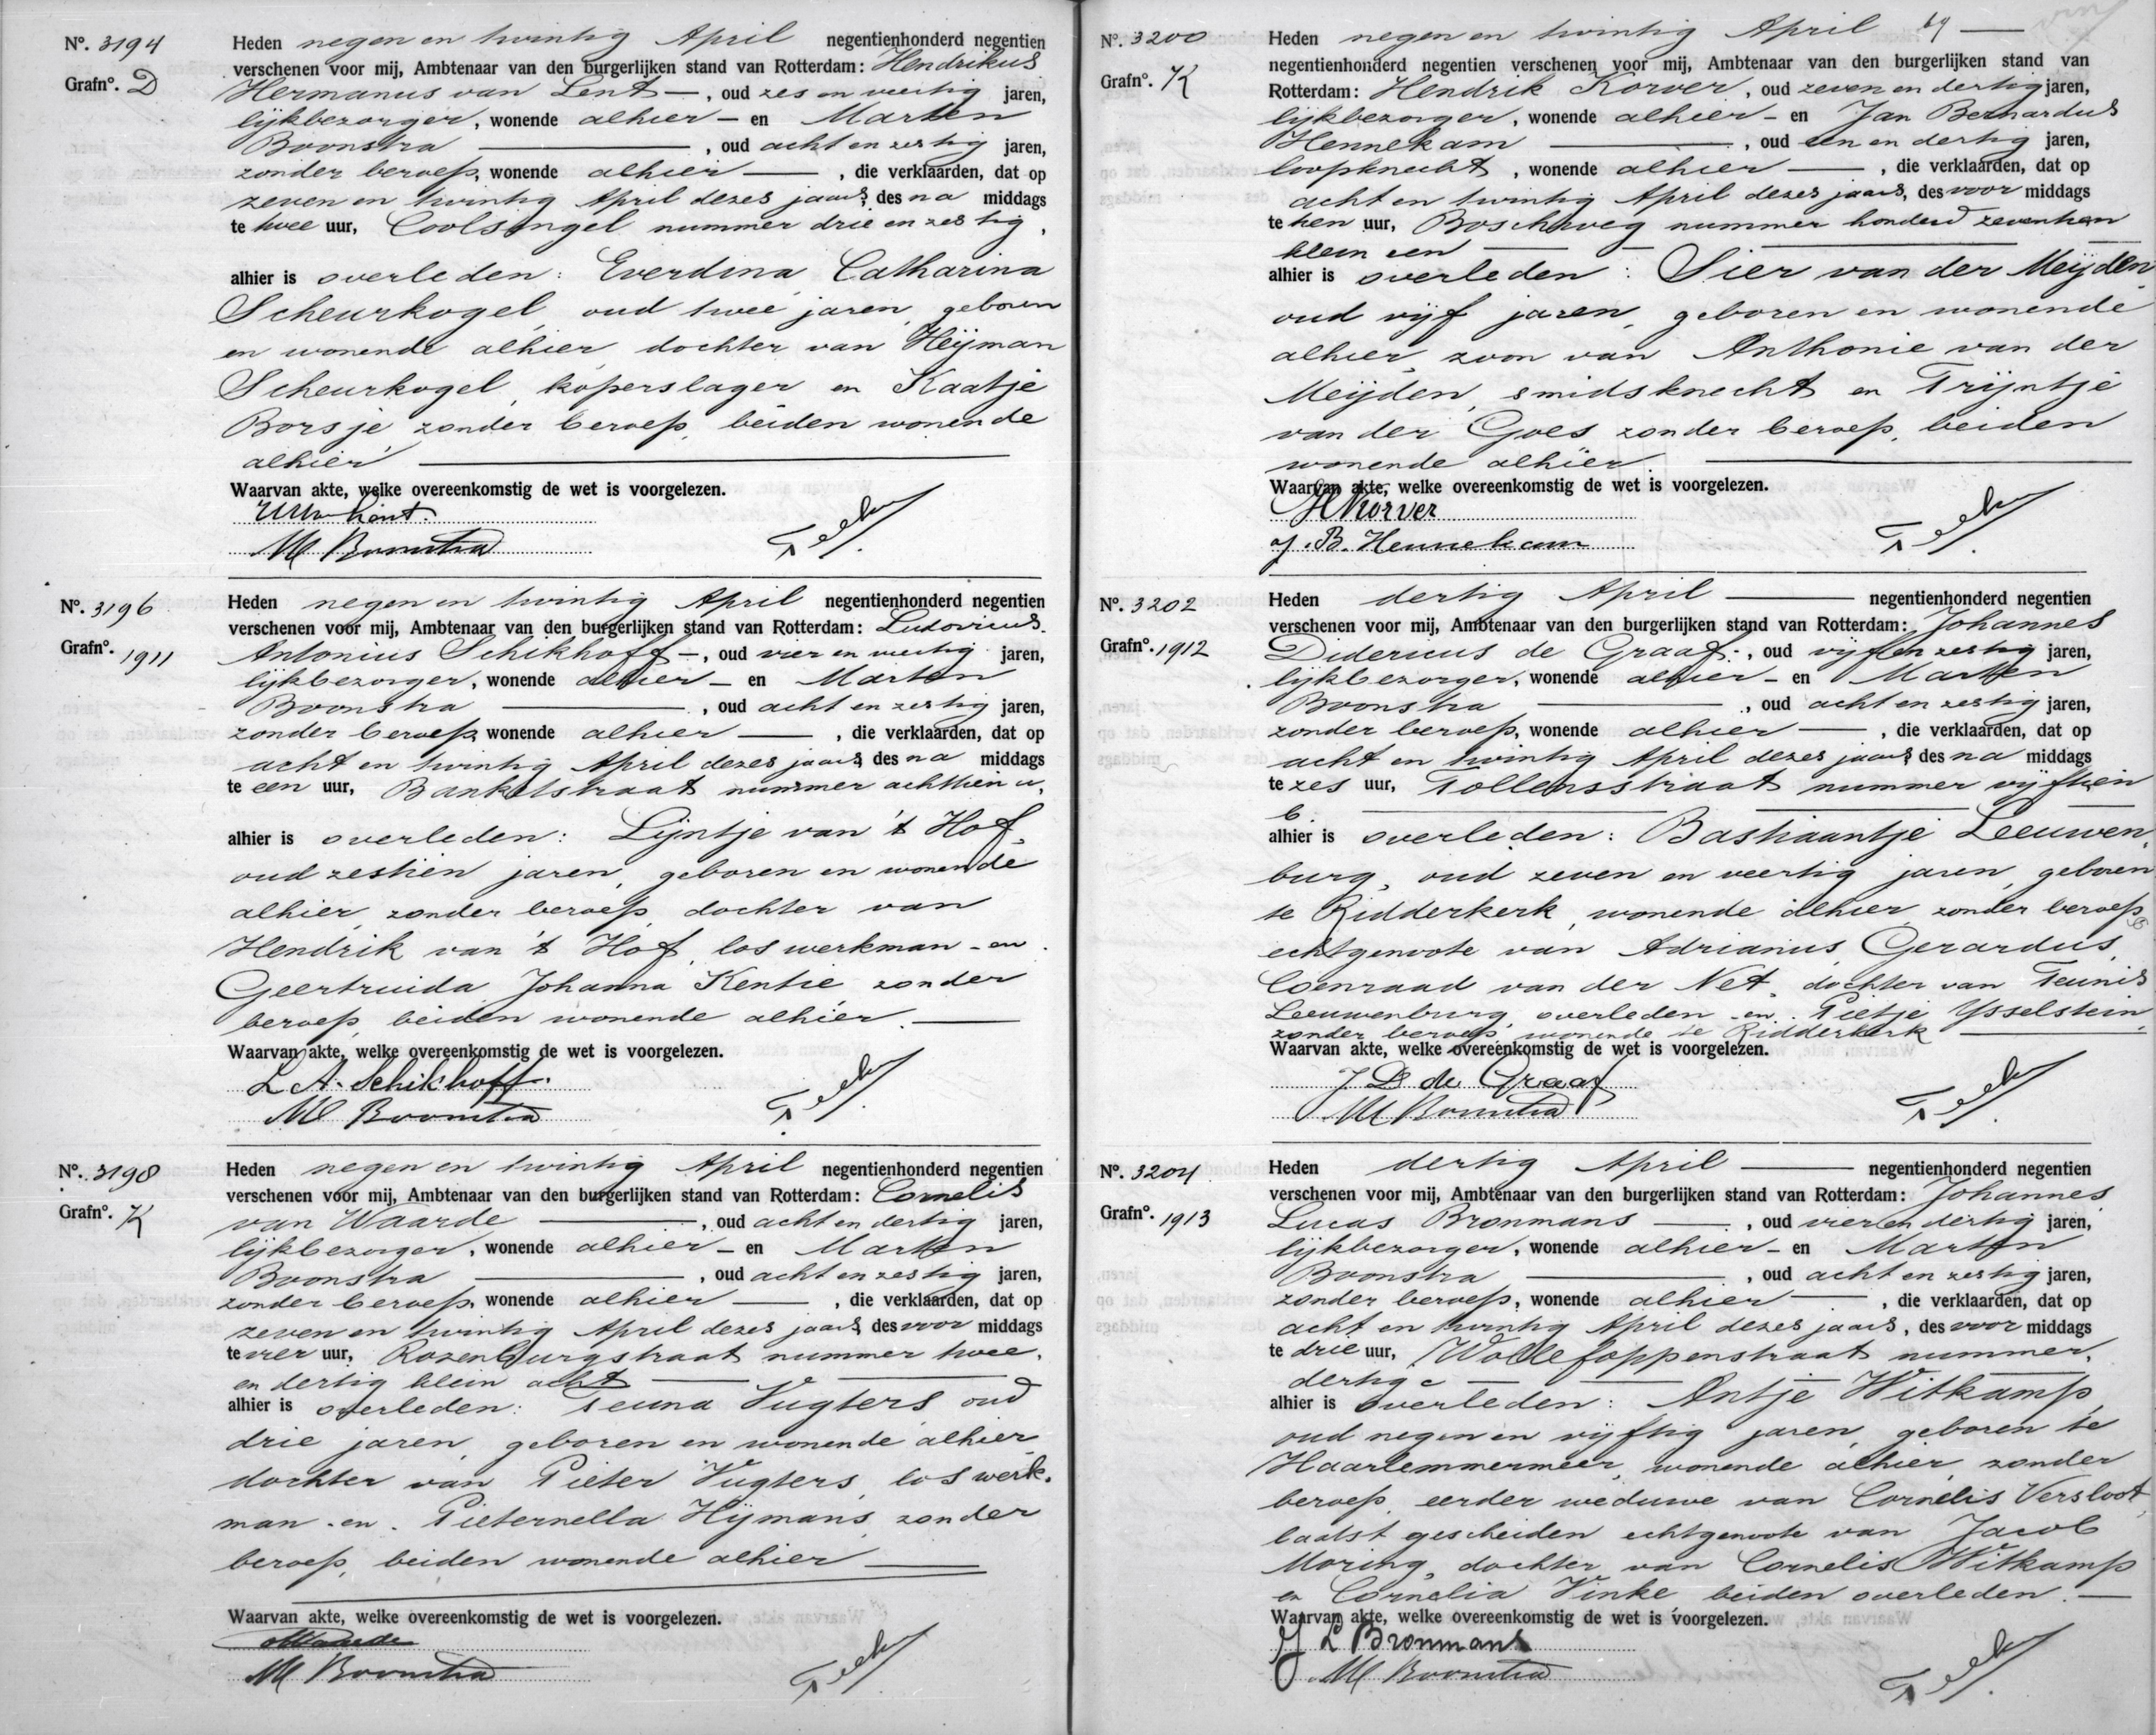 Nº. 3194
Grafnº. D
Heden negen en twintig April negentienhonderd negentien
verschenen voor mij, Ambtenaar van den burgerlijken stand van Rotterdam: Hendrikus
Hermanus van Lent —, oud zes en veertig jaren,
lijkbezorger, wonende alhier — en Marten
Boonstra —, oud acht en zestig jaren,
zonder beroep, wonende alhier —, die verklaarden, dat op
zeven en twintig April dezes jaars, des na middags
te twee uur, Coolsingel nummer drie en zestig,
alhier is overleden: Everdina Catharina
Scheurkogel, oud twee jaren, geboren
en wonende alhier, dochter van Heijman
Scheurkogel, koperslager en Kaatje
Borsje, zonder beroep, beiden wonende
alhier —
Waarvan akte, welke overeenkomstig de wet is voorgelezen.
M Boonstra
Nº. 3196
Grafnº. 1911
Heden negen en twintig April negentienhonderd negentien
verschenen voor mij, Ambtenaar van den burgerlijken stand van Rotterdam: Ludovicus
Antonius Schikhoff —, oud vier en veertig jaren,
lijkbezorger, wonende alhier — en Marten
Boonstra —, oud acht en zestig jaren,
zonder beroep, wonende alhier —, die verklaarden, dat op
acht en twintig April dezes jaars, des na middags
te een uur, Bankastraat nummer achttien a,
alhier is overleden: Lijntje van 't Hof,
oud zestien jaren, geboren en wonende
alhier, zonder beroep, dochter van
Hendrik van 't Hof, los werkman - en
Geertruida Johanna Kentie, zonder
beroep, beiden wonende alhier. —
Waarvan akte, welke overeenkomstig de wet is voorgelezen.
L A. Schikhoff.
M Boonstra
Nº. 3198
Grafnº. K
Heden negen en twintig April negentienhonderd negentien
verschenen voor mij, Ambtenaar van den burgerlijken stand van Rotterdam: Cornelis
van Waarde —, oud acht en dertig jaren,
lijkbezorger, wonende alhier — en Marten
Boonstra —, oud acht en zestig jaren,
zonder beroep, wonende alhier —, die verklaarden, dat op
zeven en twintig April dezes jaars, des voor middags
te vier uur, Rozenburgstraat nummer twee
en dertig klein acht —
alhier is overleden: Teuna Vugters, oud
drie jaren, geboren en wonende alhier,
dochter van Pieter Vugters, los werk-
man - en Pieternella Hijmans, zonder
beroep, beiden wonende alhier —
Waarvan akte, welke overeenkomstig de wet is voorgelezen.
M Boonstra
Nº. 3200
Grafnº. K
Heden negen en twintig April —
negentienhonderd negentien verschenen voor mij, Ambtenaar van den burgerlijken stand van
Rotterdam: Hendrik Korver, oud zeven en dertig jaren,
lijkbezorger, wonende alhier — en Jan Bernardus
Hennekam —, oud een en dertig jaren,
loopknecht, wonende alhier —, die verklaarden, dat op
acht en twintig April dezes jaars, des voor middags
te tien uur, Boschweg nummer honderd zeventien
klein een —
alhier is overleden: Sier van der Meijden,
oud vijf jaren, geboren en wonende
alhier, zoon van Anthonie van der
Meijden, smidsknecht en Trijntje
van der Goes, zonder beroep, beiden
wonende alhier —
Waarvan akte, welke overeenkomstig de wet is voorgelezen.
H Korver
J. B. Hennekam
Nº. 3202
Grafnº. 1912
Heden dertig April — negentienhonderd negentien
verschenen voor mij, Ambtenaar van den burgerlijken stand van Rotterdam: Johannes
Didericus de Graaf, oud vijf en zestig jaren,
lijkbezorger, wonende alhier — en Marten
Boonstra —, oud acht en zestig jaren,
zonder beroep, wonende alhier —, die verklaarden, dat op
acht en twintig April dezes jaars, des na middags
te zes uur, Tollensstraat nummer vijftien
b. —
alhier is overleden: Bastiaantje Leeuwen-
burg, oud zeven en veertig jaren, geboren
te Ridderkerk, wonende alhier, zonder beroep,
echtgenoote van Adrianus Gerardus
Coenraad van der Net, dochter van Teunis
Leeuwenburg, overleden - en Pietje Ysselstein,
zonder beroep, wonende te Ridderkerk —
Waarvan akte, welke overeenkomstig de wet is voorgelezen.
J D de Graaf
M Boonstra
Nº. 3204
Grafnº. 1913
Heden dertig April — negentienhonderd negentien
verschenen voor mij, Ambtenaar van den burgerlijken stand van Rotterdam: Johannes
Lucas Bronmans —, oud vier en dertig jaren,
lijkbezorger, wonende alhier — en Marten
Boonstra —, oud acht en zestig jaren,
zonder beroep, wonende alhier —, die verklaarden, dat op
acht en twintig April dezes jaars, des voor middags
te drie uur, Wollefoppenstraat nummer
dertig c —
alhier is overleden: Antje Witkamp,
oud negen en vijftig jaren, geboren te
Haarlemmermeer, wonende alhier, zonder
beroep, eerder weduwe van Cornelis Versloot,
laatst gescheiden echtgenoote van Jacob
Moring, dochter van Cornelis Witkamp
en Cornelia Vinke, beiden overleden. —
Waarvan akte, welke overeenkomstig de wet is voorgelezen.
J L Bronmans
M Boonstra